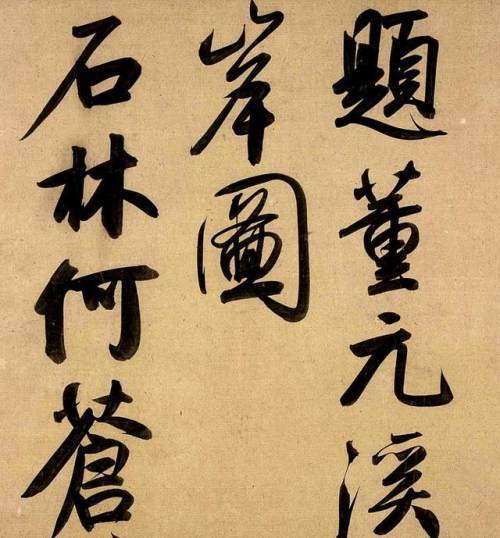 題董元溪
岸圖
石林何蒼